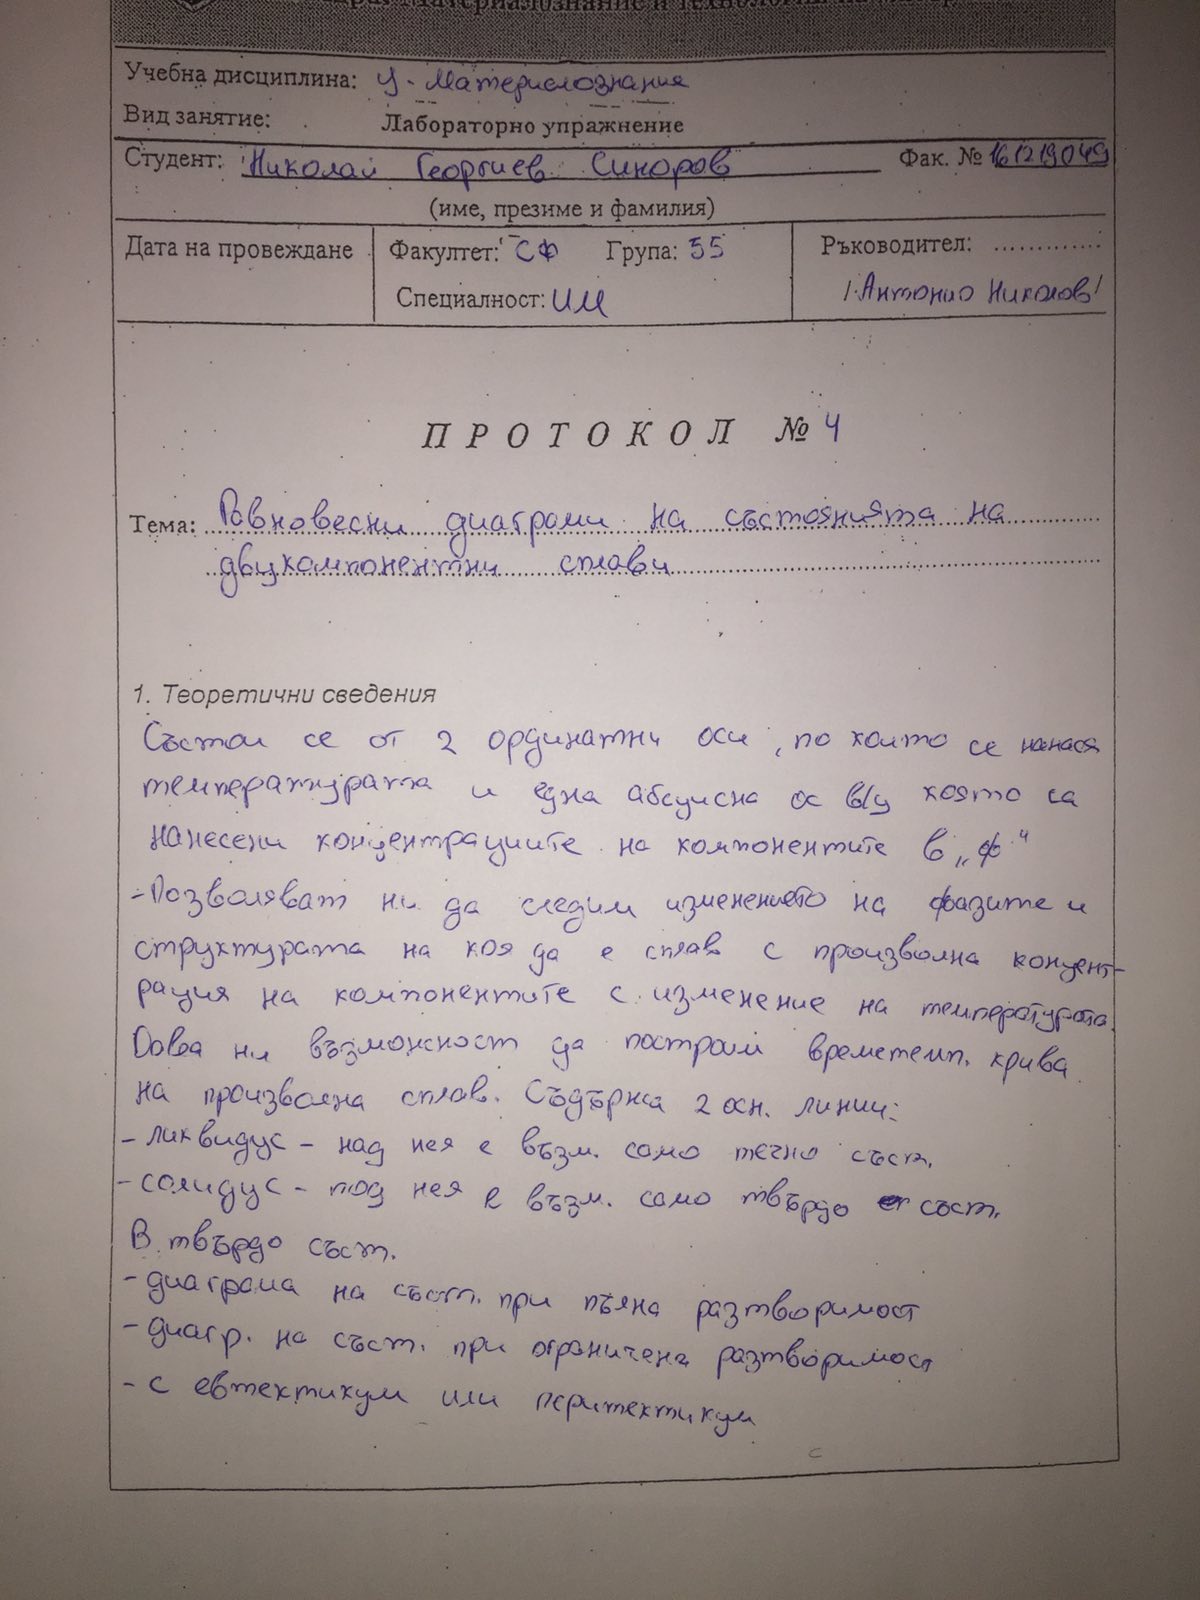 Материалознание и технология на матер
Учебна дисциплина: У-Материалознания
Вид занятие: Лабораторно упражнение
Студент: Николай Георгиев Синоров Фак. № 161219049
(име, презиме и фамилия)
Дата на провеждане Факултет: СФ Група: 55 Ръководител: .............
Специалност: ИМ /Антонио Николов/
ПРОТОКОЛ № 4
Тема: Равновесни диаграми на състоянията на
двукомпонентни сплави
1. Теоретични сведения
Състои се от 2 ординатни оси, по които се нанася
температурата и една абсцисна ос в/у която са
нанесени концентрациите на компонентите в „ф"
-Позволяват ни да следим изменението на фазите и
структурата на коя да е сплав с произволна концент-
рация на компонентите с изменение на температурата.
Дава ни възможност да построим времетемп. крива
на произволна сплав. Съдържа 2 осн. линии:
- ликвидус - над нея е възм. само течно съст.
- солидус - под нея е възм. само твърдо съст.
В твърдо съст.
- диаграма на съст. при пълна разтворимост
- диагр. на съст. при ограничена разтворимост
- с евтектикум или перитектикум